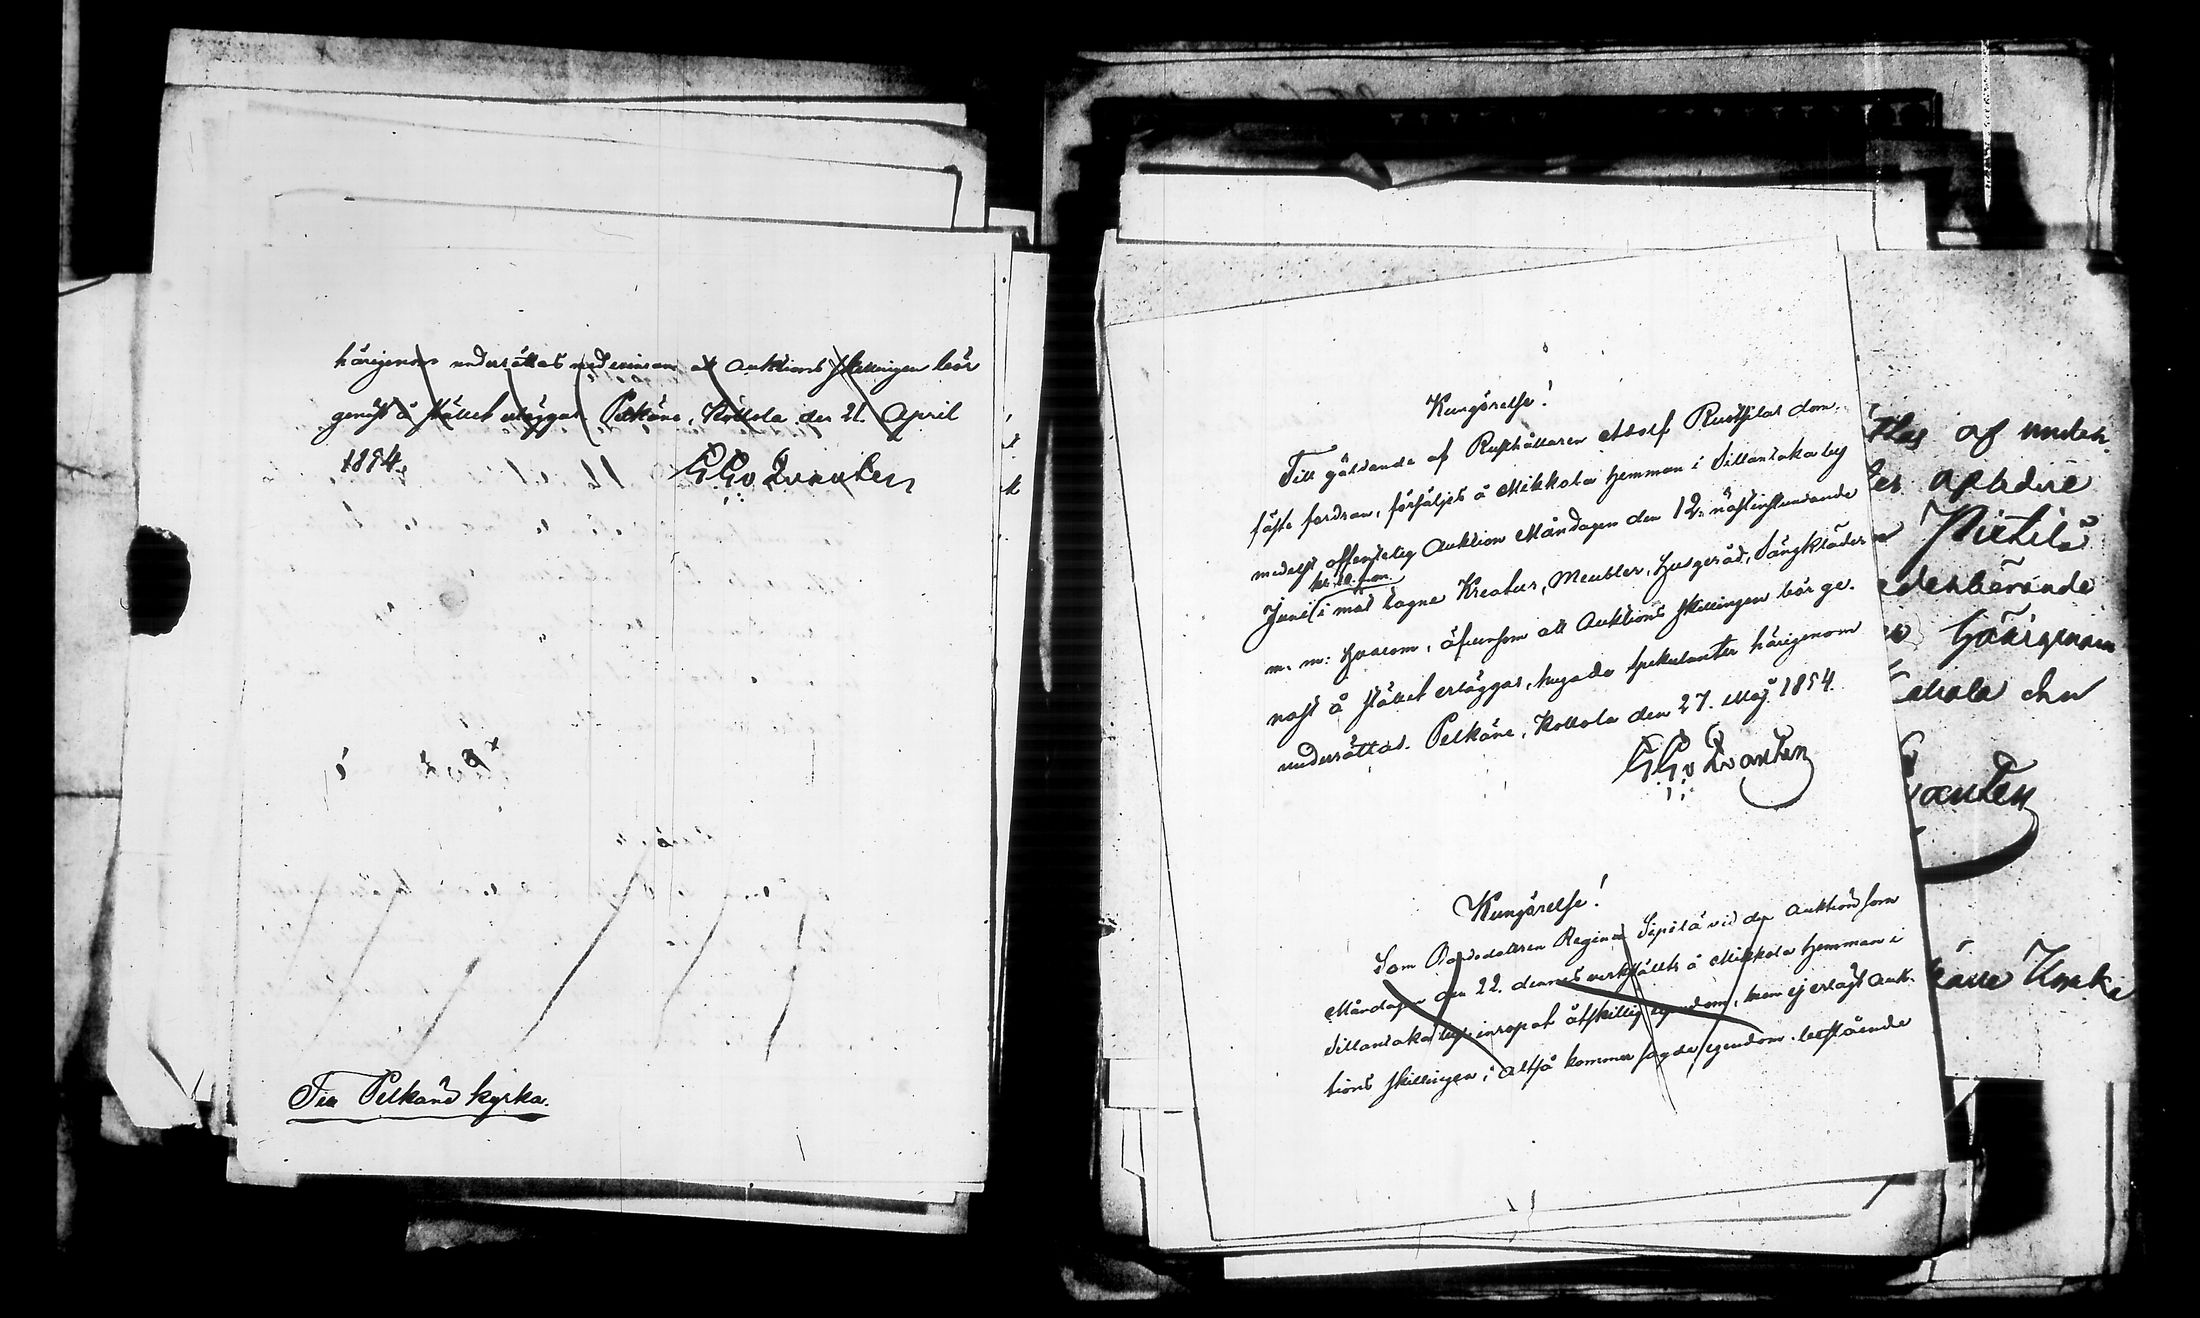 härigenom undurättas med erinran att Auktions skillingen bör
genast å stället erläggas. Pelkäne, Kollola den 21. April
1854.
G G v Qvanten
Till Pelkäne kyrka.
Kungörelse!
Till gäldande af Rusthållaren Adolf Rustfilas dom-
fäste fordran, försäljes å Mikkola Hemman i Sillansaka by
medelst offentelig Auktion Måndagen den 12. nästinstundande
kl. 10 f.m.
Junii i mät tagne Kreatur, Meubler, Husgeråd, Sängkläder
m. m: Hvarom, äfvensom att Auktions skillingen bör ge-
nast å stället erläggas, hugade spekulanter härigenom
undurättas. Pelkäne, Kollola den 27. Maj 1854.
G G v Qvanten
Kungörelse!
Som Regina Sipilä vid den Auktion som
Måndagen den 22. dennes verkställts å Mikkola Hemman i
Sillansaka by inropat åtskillig egendom, men ej erlagt Auk-
tions skillingen; Altså kommer sagde egendom, bestående
ttas af unden
Pietilä
ederbörande
härigenom
Kollola den
Qvanten